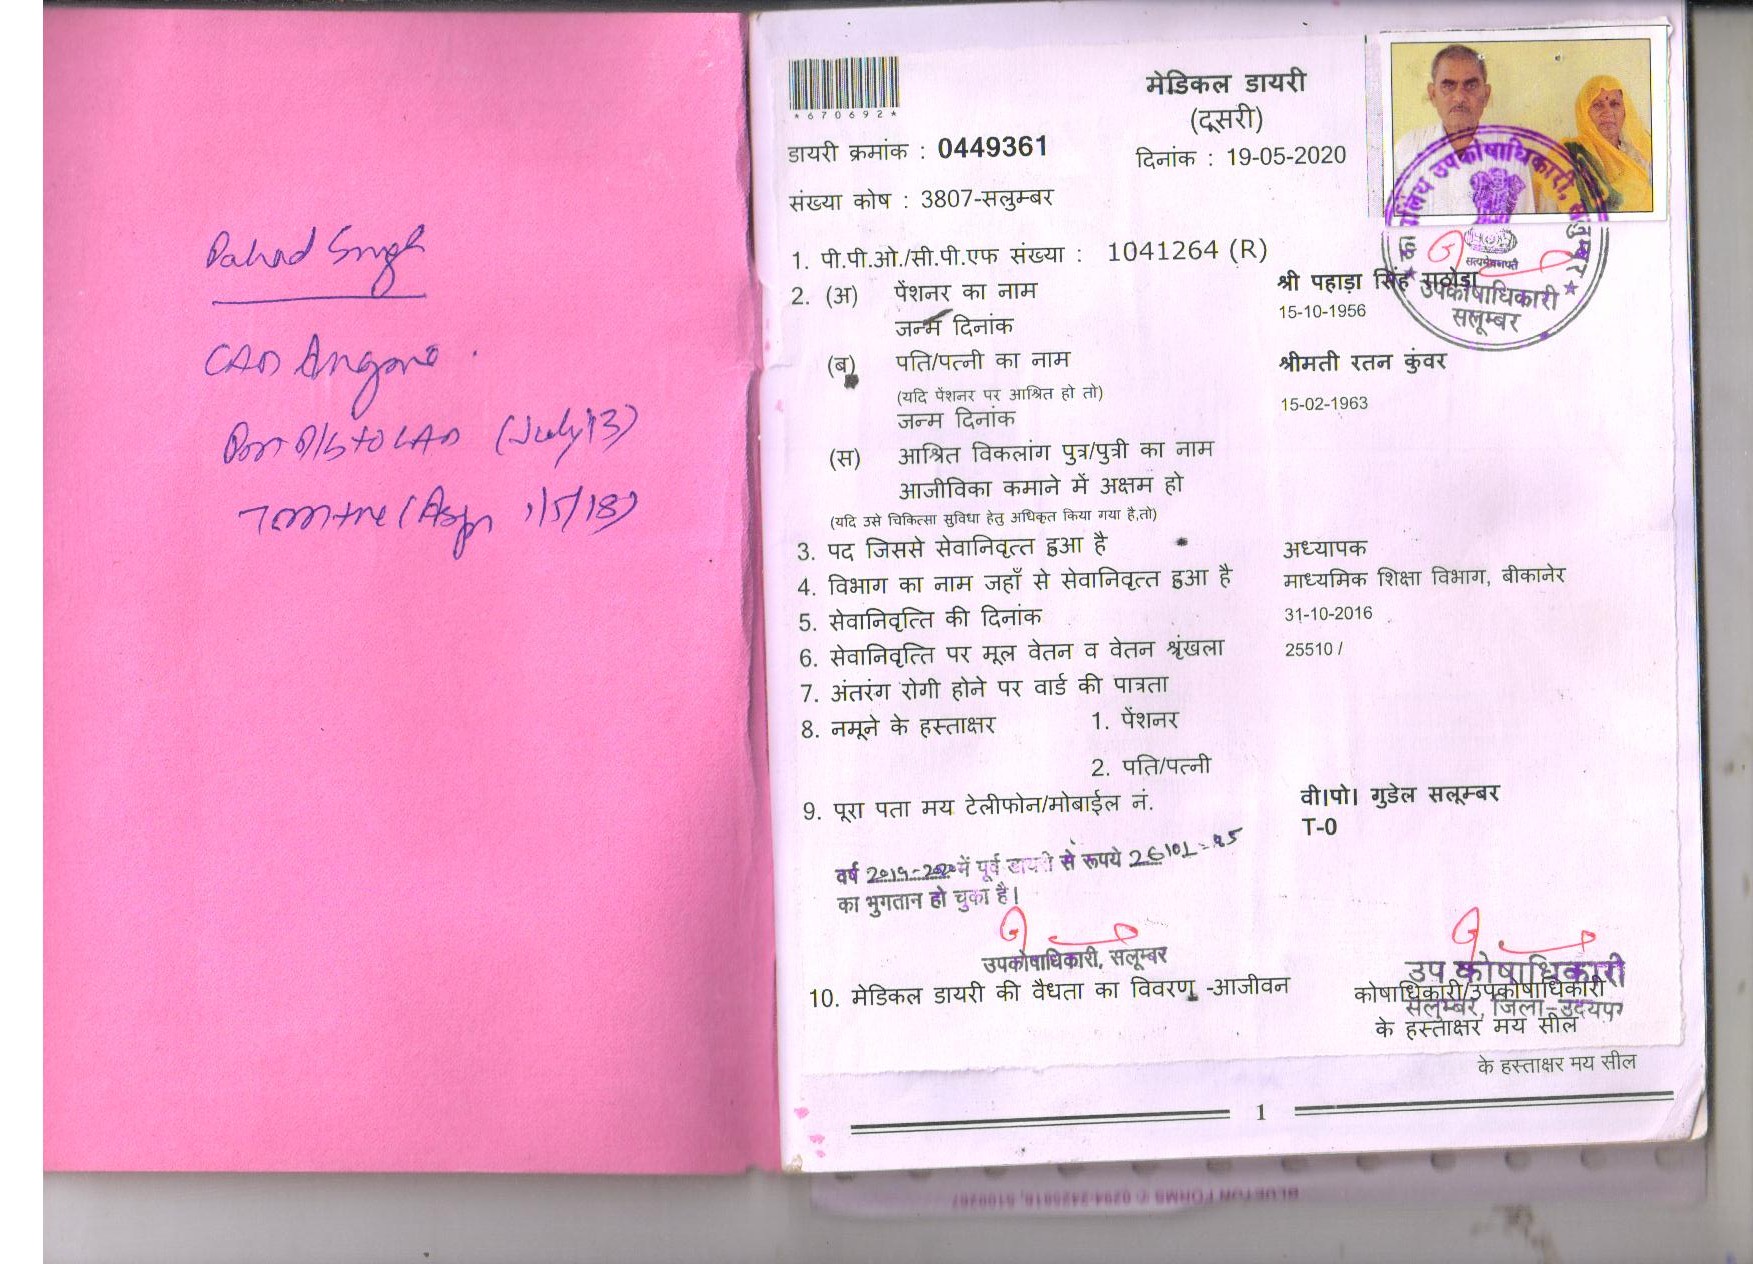 Pahad Singh
CAD Angina
Post Pls to LAD (July 13)
7 mm tne (Asyn 1/5/18)
*670692*
मेडिकल डायरी
(दूसरी)
डायरी क्रमांक : 0449361
दिनांक : 19-05-2020
संख्या कोष : 3807-सलुम्बर
1. पी.पी.ओ./सी.पी.एफ संख्या : 1041264 (R)
2. (अ) पेंशनर का नाम श्री पहाड़ा सिंह राठोड़ा
जन्म दिनांक 15-10-1956
(ब) पति/पत्नी का नाम श्रीमती रतन कुंवर
(यदि पेंशनर पर आश्रित हो तो)
जन्म दिनांक 15-02-1963
(स) आश्रित विकलांग पुत्र/पुत्री का नाम
आजीविका कमाने में अक्षम हो
(यदि उसे चिकित्सा सुविधा हेतु अधिकृत किया गया है,तो)
3. पद जिससे सेवानिवृत्त हुआ है अध्यापक
4. विभाग का नाम जहाँ से सेवानिवृत्त हुआ है माध्यमिक शिक्षा विभाग, बीकानेर
5. सेवानिवृत्ति की दिनांक 31-10-2016
6. सेवानिवृत्ति पर मूल वेतन व वेतन श्रृंखला 25510 /
7. अंतरंग रोगी होने पर वार्ड की पात्रता
8. नमूने के हस्ताक्षर 1. पेंशनर
2. पति/पत्नी
9. पूरा पता मय टेलीफोन/मोबाईल नं. वी।पो। गुडेल सलूम्बर
T-0
वर्ष 2019-2020 में पूर्व डायरी से रूपये 26101=85
का भुगतान हो चुका है।
उपकोषाधिकारी, सलूम्बर
10. मेडिकल डायरी की वैधता का विवरण -आजीवन
उप कोषाधिकारी
कोषाधिकारी/उपकोषाधिकारी
सलुम्बर, जिला-उदयपुर
के हस्ताक्षर मय सील
के हस्ताक्षर मय सील
1
कार्यालय उपकोषाधिकारी, सलुम्बर
सत्यमेव जयते
उपकोषाधिकारी
सलूम्बर